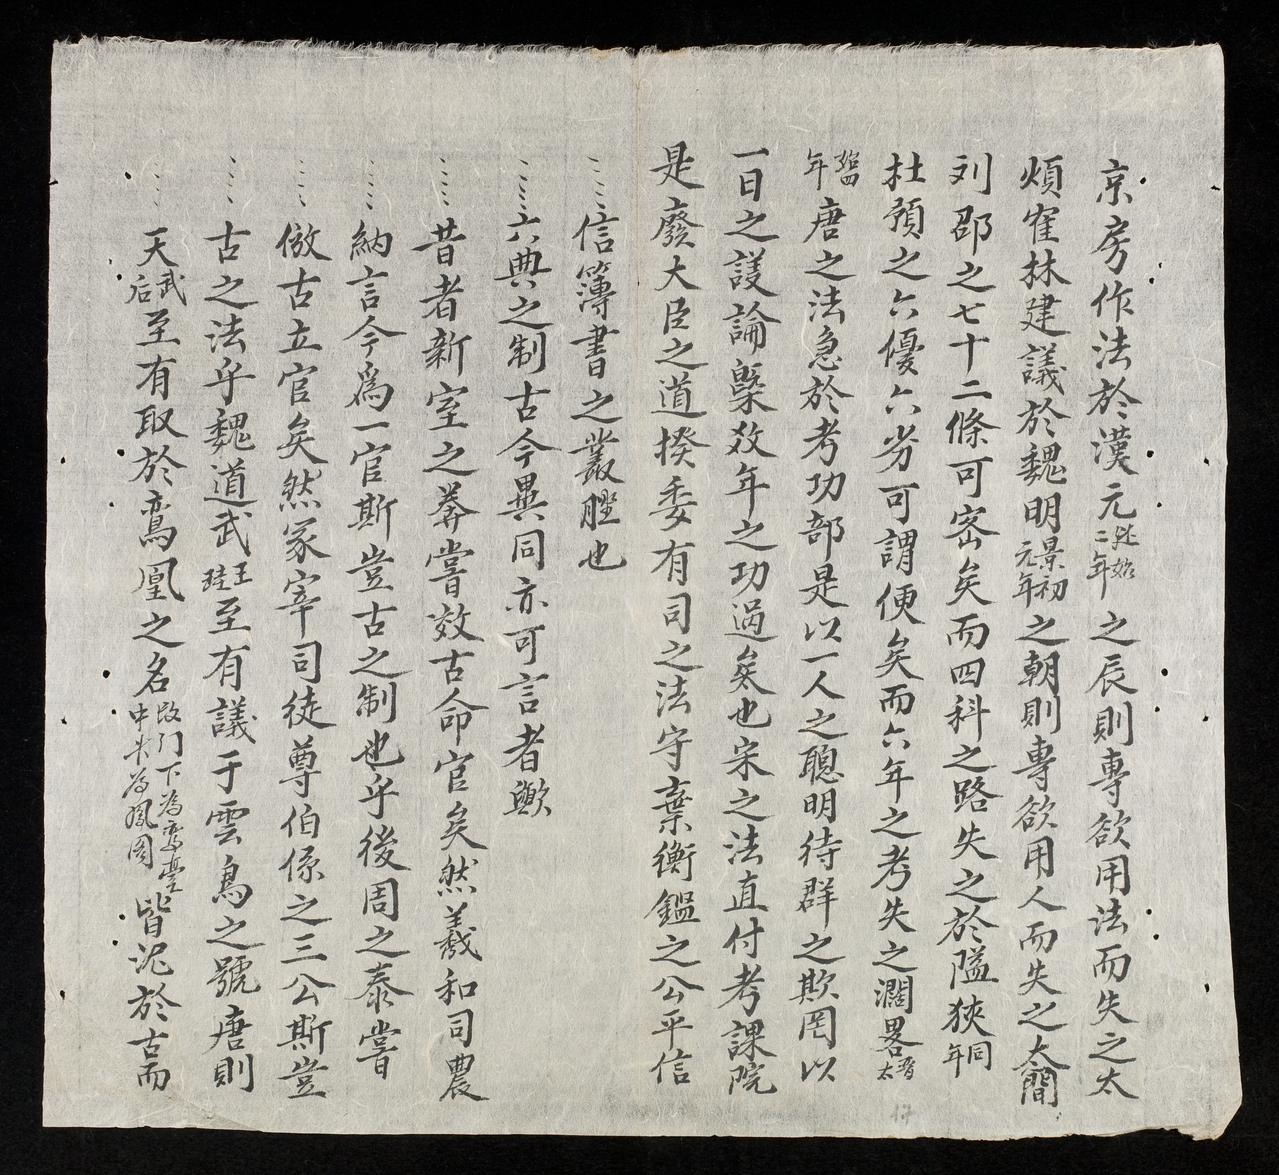 京房作法於漢元建始二年之辰則專欲用法而失之太
煩崔林建議於魏明景初元年之朝則專欲用人而失之太簡
刘邵之七十二條可密矣而四科之路失之於隘狹同年
杜預之六優六劣可謂便矣而六年之考失之濶畧晋太
始四年唐之法急於考功部是以一人之聰明待群之欺罔以
一日之議論槩攷年之功過矣也宋之法直付考課院
是廢大臣之道揆委有司之法守棄衡鑑之公平信
信簿書之叢脞也
六典之制古今異同亦可言者歟
昔者新室之莽嘗效古命官矣然羲和司農
納言今爲一官斯豈古之制也乎後周之泰嘗
倣古立官矣然冢宰司徒尊伯係之三公斯豈
古之法乎魏道武王珪至有議于雲鳥之號唐則
天武后至有取於鸞凰之名改門下為鸞臺中书为鳳阁皆泥於古而